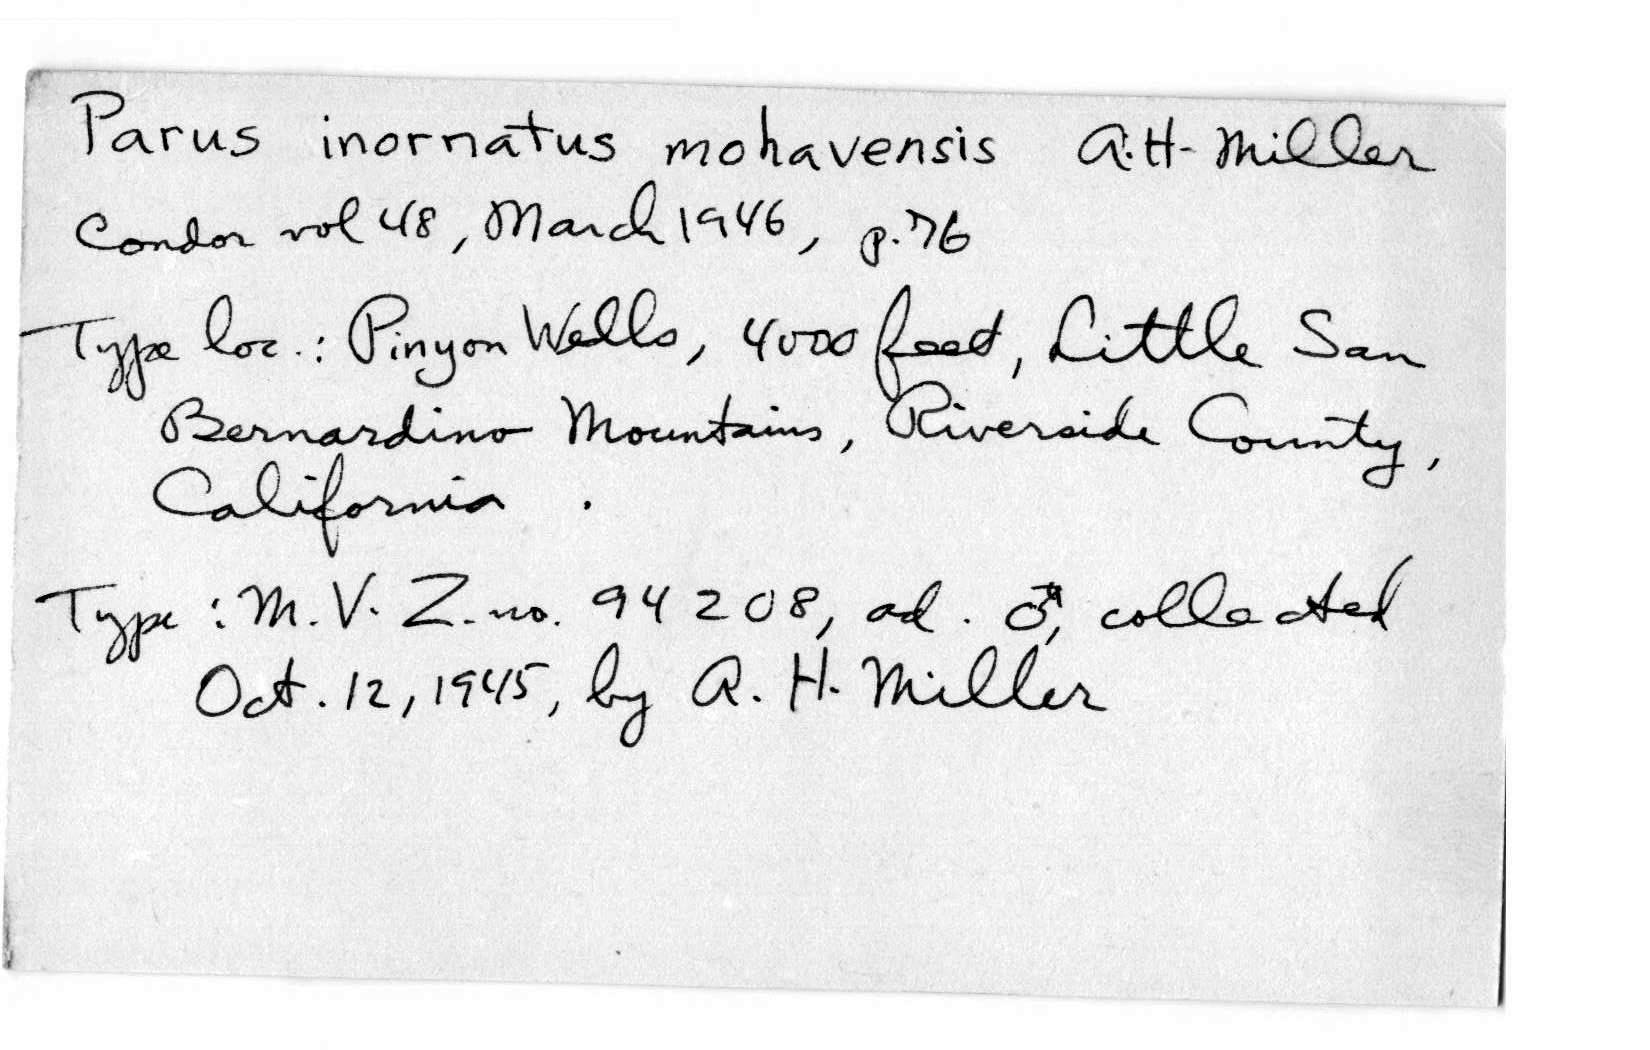 Parus inornatus mohavensis A.H. Miller
Condor vol 48, March 1946, p. 76
Type loc.: Pinyon Wells, 4000 feet, Little San
Bernardino Mountains, Riverside County,
California.
Type: M.V.Z. no. 94208, ad. ♂, collected
Oct. 12, 1945, by A. H. Miller